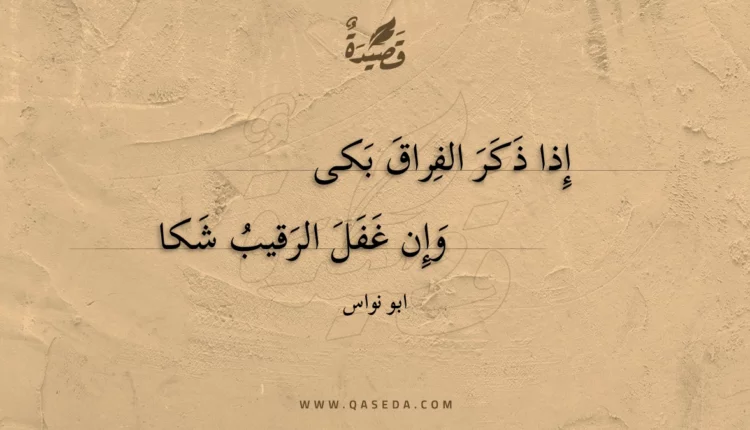 قَصِيدَةٌ
إِذا ذَكَرَ الفِراقَ بَكى
وَإِن غَفَلَ الرَقيبُ شَكا
ابو نواس
WWW.QASEDA.COM